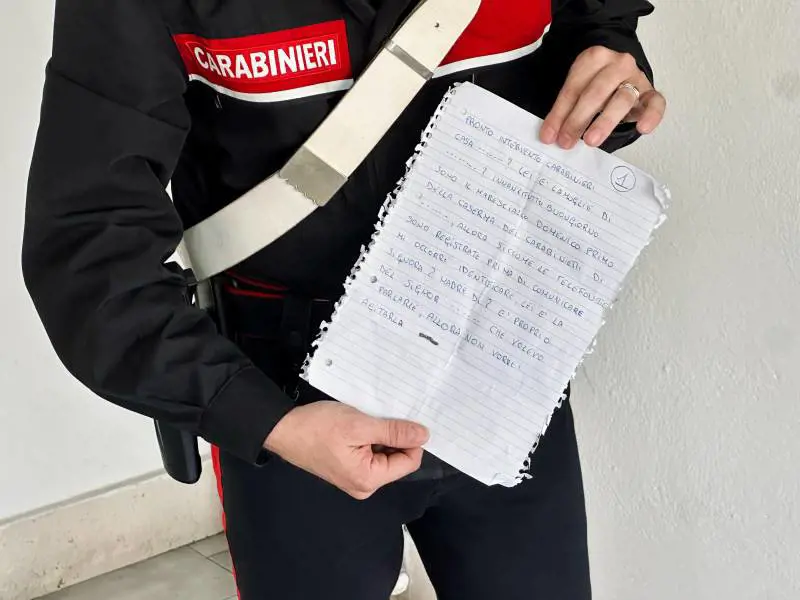 CARABINIERI
1
PRONTO INTERVENTO CARABINIERI
CASA ......... ? LEI E' LA MOGLIE DI
......... ? INNANZITUTTO BUONGIORNO
SONO IL MARESCIALLO DOMENICO PRIMO
DELLA CASERMA DEI CARABINIERI DI
? ......, ALLORA SICCOME LE TELEFONATE
SONO REGISTRATE PRIMA DI COMUNICARE
MI OCCORRE IDENTIFICARE LEI E' LA
SIGNORA ? MADRE DI ? E' PROPRIO
DEL SIGNOR ......... CHE VOLEVO
PARLARLE, ALLORA NON VORREI
AGITARLA